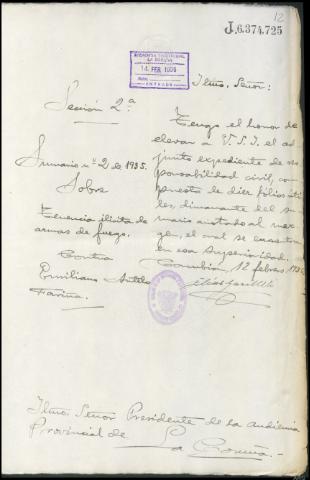 12
J.6.374.725
AUDIENCIA TERRITORIAL
LA CORUÑA
14 FEB 1936
ENTRADA
Iltmo. Señor:
Sección 2ª
Tengo el honor de
elevar a V.S.I. el ad-
junto expediente de res-
ponsabilidad civil, com-
puesto de diez folios úti-
les, dimanante del su-
mario anotado al mar-
gen, el cual se encuentra
en esa Superioridad.
12 febrero 1936
Sumario nº 2 de 1935.
Sobre
Tenencia ilícita de
armas de fuego.
Contra
Emiliano Antelo
Fariña.
Iltmo. Señor Presidente de la Audiencia
Provincial de
La Coruña.-